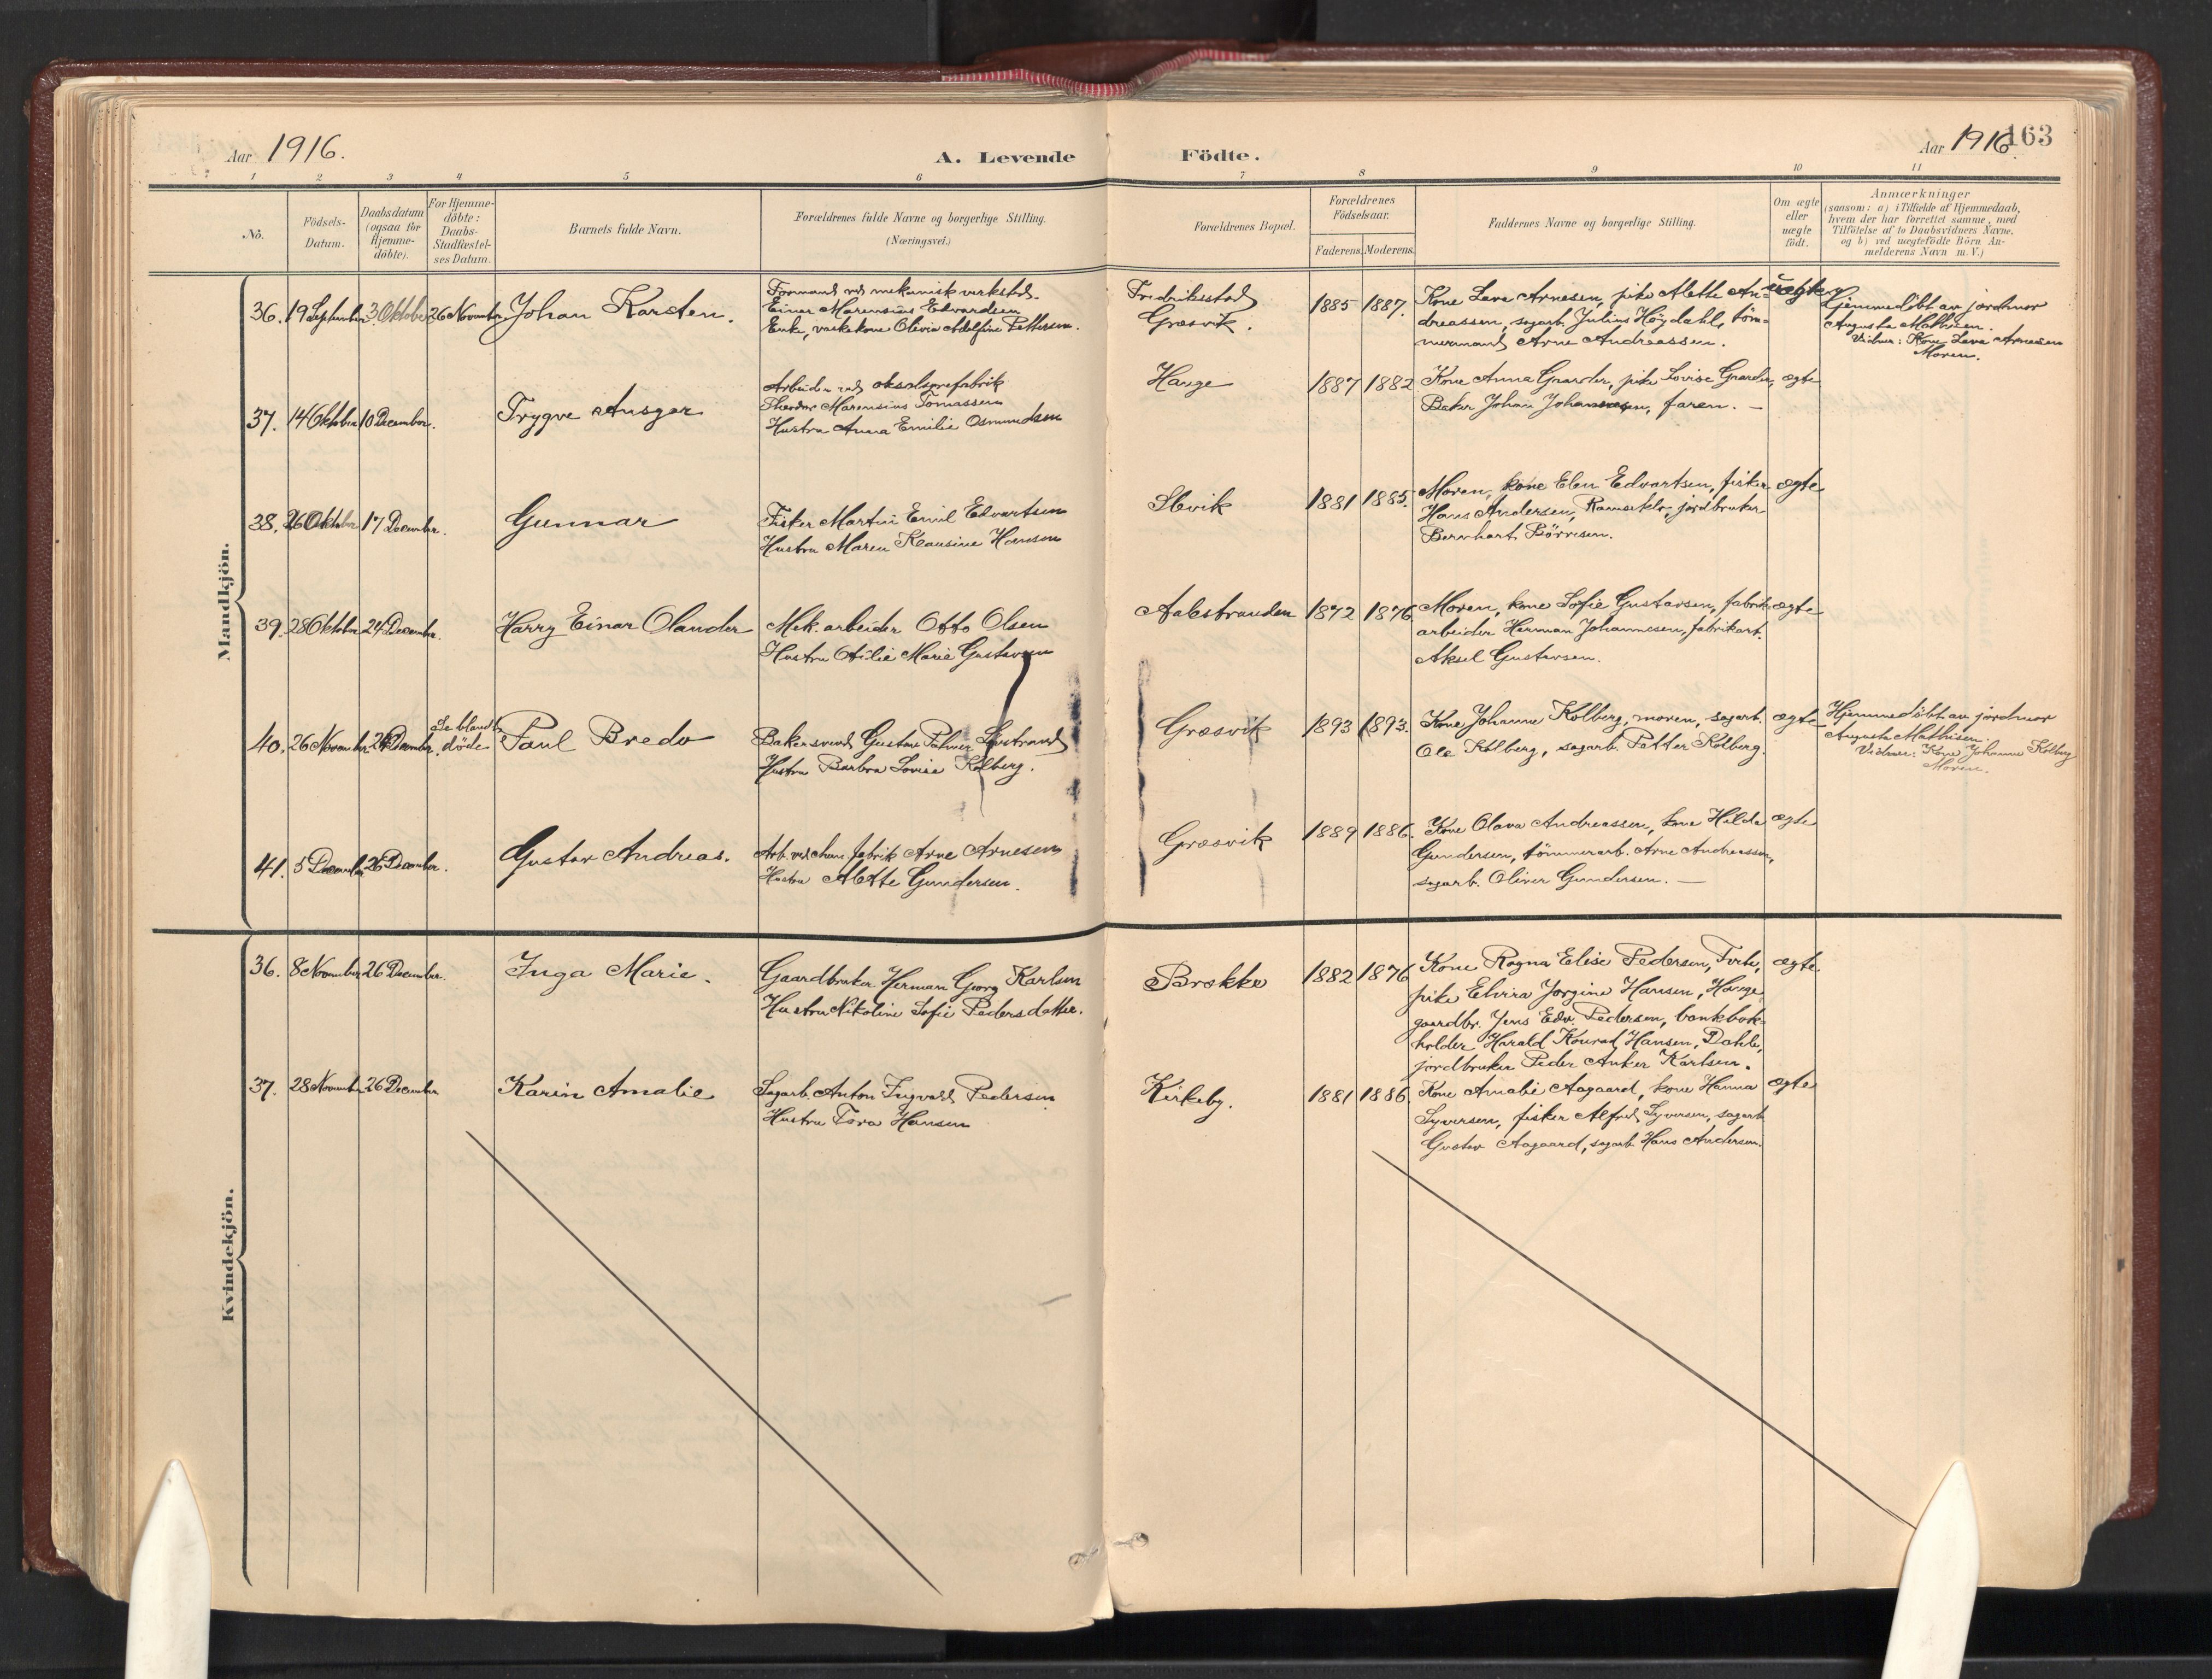 Aar 1916.
A. Levende Födte.
Aar 1916
163
1 2 3 4 5 6 7 8 9 10 11
No.
Födsels-
Datum.
Daabsdatum
(ogsaa for
Hjemme-
döbte).
For Hjemme-
döbte:
Daabs-
Stadfæstel-
ses Datum.
Barnets fulde Navn.
Forældrenes fulde Navne og borgerlige Stilling.
(Næringsvei.)
Forældrenes Bopæl.
Forældrenes
Födselsaar.
Faderens.
Moderens.
Faddernes Navne og borgerlige Stilling.
Om ægte
eller
uægte
födt.
Anmærkninger
(saasom: a) i Tilfælde af Hjemmedaab,
hvem der har forrettet samme, med
Tilföielse af to Daabsvidners Navne,
og b) ved uægtefödte Börn An-
melderens Navn m. V.)
Mandkjön.
36. 19 September 3 Oktober 26 November
Johan Karsten.
Formand ved mekanisk verksted.
Einar Marensius Edvardsen
Enke, vaskekone Olivia Adolfine Pettersen.
Fredriksstad
Græsvik.
1885 1887.
Kone Lava Arnesen, pike Alette An-
dreassen, sagarb. Julius Höydahl, töm-
mermand Arne Andreassen.
uægte
Hjemmedöbt av jordmor
Augusta Mathisen.
Vidner: Kone Lava Arnesen
Moren.
37. 14 Oktober 10 December.
Trygve Ansgar
Arbeider ved oksalsyrefabrik
Theodor Marensius Tomassen
Hustru Anna Emilie Osmundsen
Hauge
1887 1882
Kone Anna Gaarder, pike Lovise Gaarder,
Baker Johan Johannesen, faren. —
ægte
38. 26 Oktober 17 December.
Gunnar
Fisker Martin Emil Edvartsen
Hustru Maren Klausine Hansen
Slevik
1881 1885.
Moren, kone Elen Edvartsen, fisker
Hans Andersen, Ramseklo, jordbruker
Bernhart Börresen.
ægte
39. 28 Oktober 24 December.
Harry Einar Olander
Mek. arbeider Otto Olsen
Hustru Otilie Marie Gustavsen
Aalestranden
1872 1876.
Moren, kone Sofie Gustavsen, fabrik-
arbeider Herman Johannesen, fabrikarb.
Aksel Gustavsen.
ægte
40. 26 November 26 December.
Se blandt
döde
Paul Bredo
Bakersvend Gustav Palmer Lövstrand
Hustru Barbra Lovise Kölberg.
Græsvik
1893 1893.
Kone Johanne Kölberg, moren, sagarb.
Ole Kölberg, sagarb. Petter Kölberg.
ægte
Hjemmedöbt av jordmor
Augusta Mathisen.
Vidner: Kone Johanne Kölberg
Moren.
41. 5 December 26 December.
Gustav Andreas.
Arb. ved chem. fabrik Arne Arnesen
Hustru Alette Gundersen.
Græsvik
1889 1886.
Kone Olava Andreassen, kone Hilda
Gundersen, tömmerarb. Arne Andreassen,
sagarb. Oliver Gundersen. —
ægte
Kvindekjön.
36. 8 November 26 December.
Inga Marie.
Gaardbruker Herman Georg Karlsen
Hustru Nikoline Sofie Pedersdatter.
Brokke
1882 1876
Kone Ragna Elise Pedersen, Torte,
pike Elvira Jörgine Hansen, Hauge
gaardbr. Jens Edv. Pedersen, bankbok-
holder Harald Konrad Hansen, Dahle,
jordbruker Peder Anker Karlsen.
ægte.
37. 28 November 26 December.
Karin Amalie
Sagarb. Anton Ingvald Pedersen
Hustru Tora Hansen
Kirkeby.
1881 1886.
Kone Amalie Aagaard, kone Hanna
Syversen, fisker Alfred Syversen, sagarb.
Gustav Aagaard, sagarb. Hans Andersen.
ægte